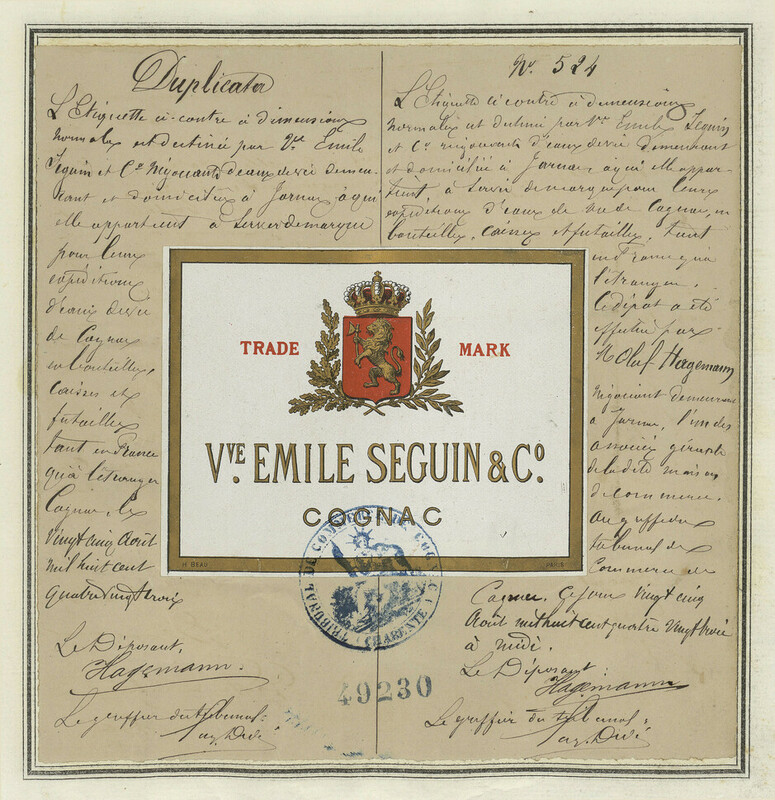 Duplicata
L'Etiquette ci-contre à dimensions
normales est destinée par Vve Emile
Seguin et Ce Négociants d'eaux de vie demeu-
rant et domiciliés à Jarnac à qui
elle appartient à Servir de marque
pour leurs
expéditions
d'eaux de vie
de Cognac
en bouteilles,
caisses et
futailles
tant en France
qu'à l'étranger
Cognac, le
vingt cinq août
mil huit cent
quatre vingt trois
Le Déposant,
Hagemann.
Le greffier du tribunal:
No. 524
L'Etiquette ci contre à dimensions
normales est destinée par Vve Emile Seguin
et Ce négociants d'eaux de vie demeurant
et domiciliés à Jarnac à qui elle appar-
tient à Servir de marque pour leurs
expéditions d'eaux de vie de Cognac, en
bouteilles, caisses et futailles, tant
en France qu'à
l'étranger.
Le dépôt a été
effectué par
M Oluf Hagemann
négociant demeurant
à Jarnac, l'un des
associés gérants
de la dite maison
de commerce.
au greffe du
tribunal de
Commerce de
Cognac. Ce jour vingt cinq
Août mil huit cent quatre vingt trois
à midi.
Le Déposant:
Hagemann
Le greffier du tribunal:
TRADE MARK
VVE EMILE SEGUIN & CO.
COGNAC
H. BEAU
PARIS
TRIBUNAL DE COMMERCE DE COGNAC
(CHARENTE)
49230